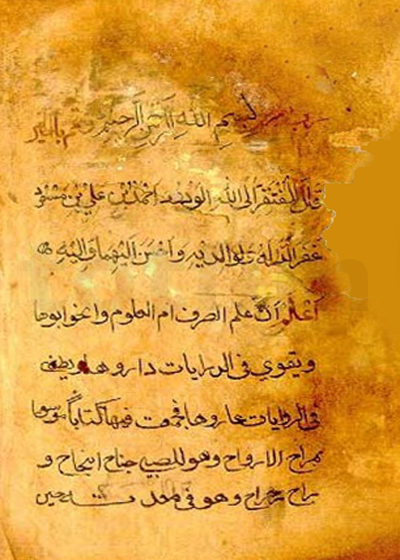 بسم الله الرحمن الرحيم وتمم بالخير
قال المفتقر الى الله الودود احمد بن علي بن مسعود
غفر الله له ولوالديه واحسن اليهما واليه
اعلم ان علم الصرف ام العلوم والنحو ابوها
ويقوي في الدرايات داروها ويطغى
في الروايات عاروها فجمعت فيها كتابا موسوما
بمراح الارواح وهو للصبي جناح النجاح و
راح رحراح وهو في معدته حين